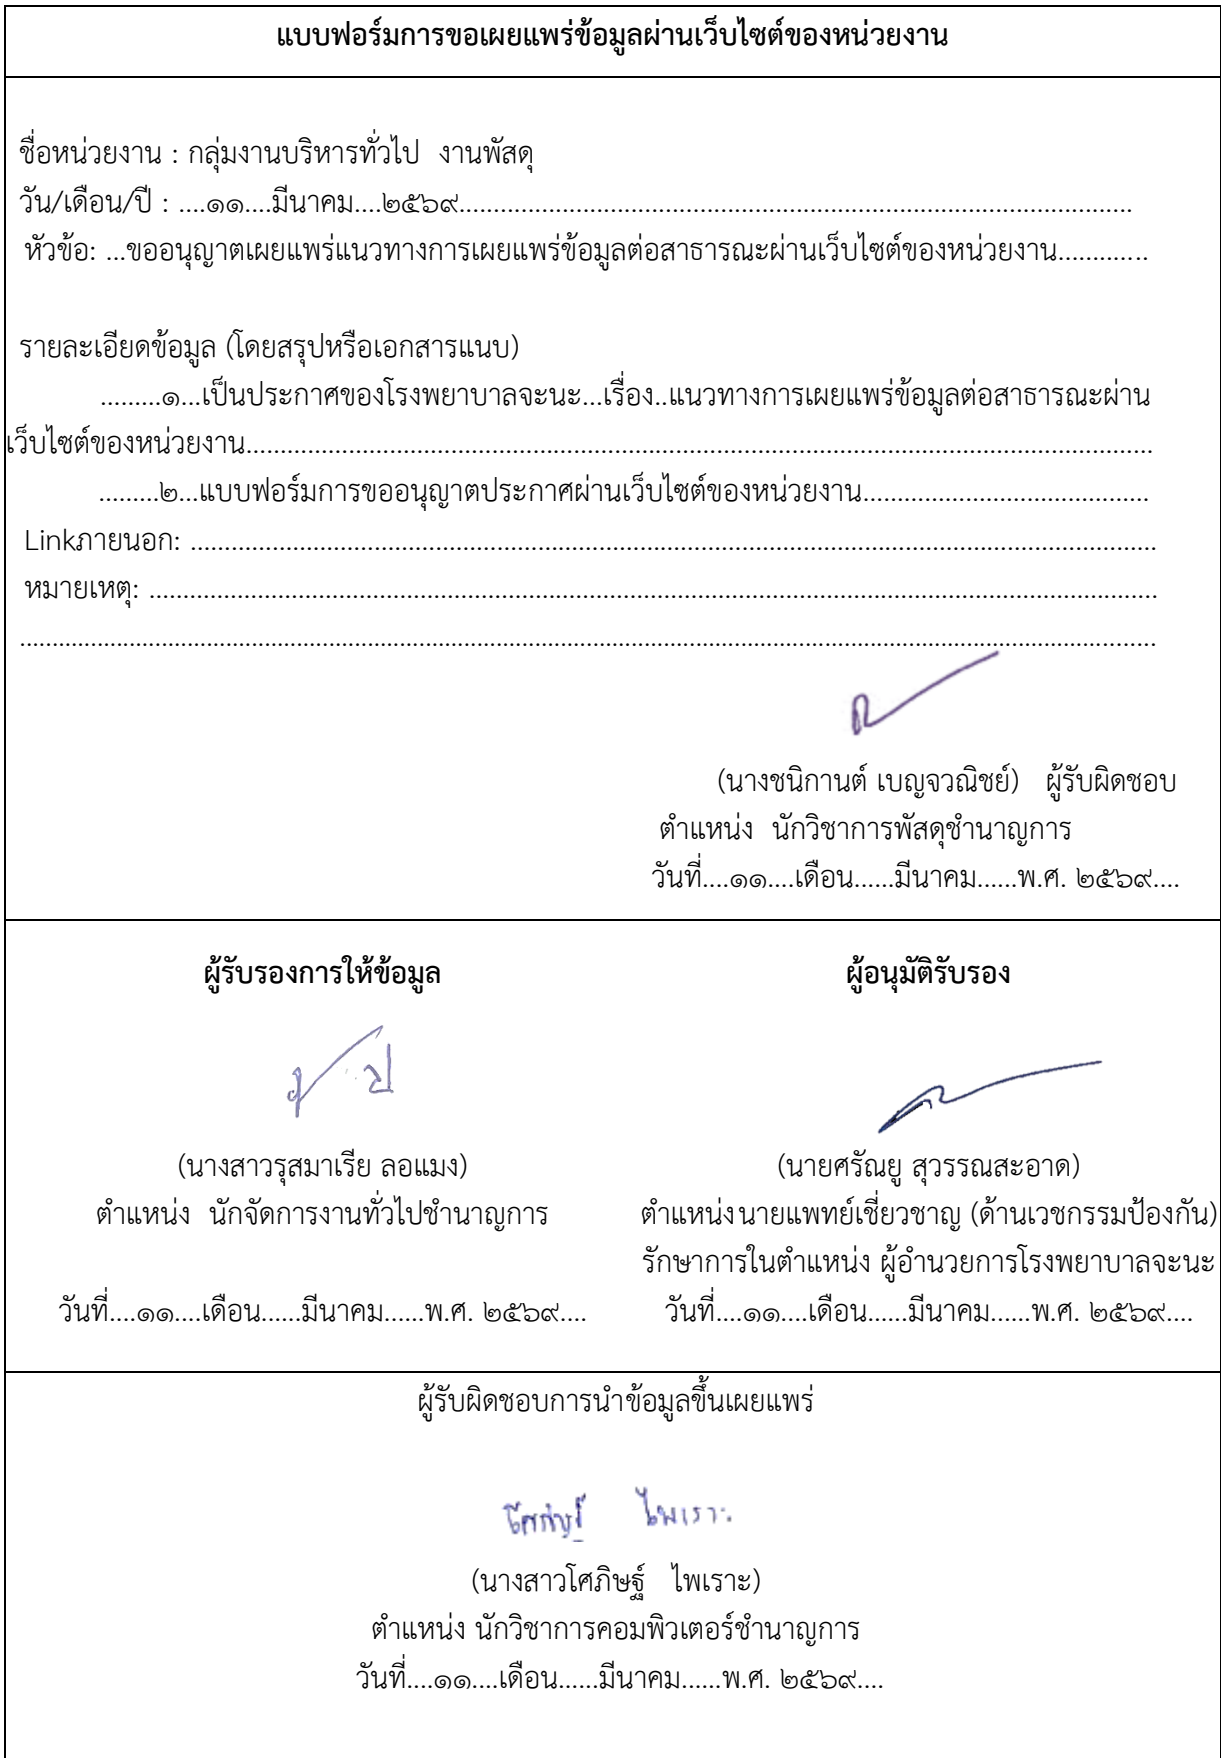 แบบฟอร์มการขอเผยแพร่ข้อมูลผ่านเว็บไซต์ของหน่วยงาน
ชื่อหน่วยงาน : กลุ่มงานบริหารทั่วไป งานพัสดุ
วัน/เดือน/ปี : ....๑๑....มีนาคม....๒๕๖๙....................................................................................................
หัวข้อ: ...ขออนุญาตเผยแพร่แนวทางการเผยแพร่ข้อมูลต่อสาธารณะผ่านเว็บไซต์ของหน่วยงาน.............
รายละเอียดข้อมูล (โดยสรุปหรือเอกสารแนบ)
.........๑...เป็นประกาศของโรงพยาบาลจะนะ...เรื่อง..แนวทางการเผยแพร่ข้อมูลต่อสาธารณะผ่าน
เว็บไซต์ของหน่วยงาน.......................................................................................................................................
.........๒...แบบฟอร์มการขออนุญาตประกาศผ่านเว็บไซต์ของหน่วยงาน..........................................
Linkภายนอก: ...............................................................................................................................................
หมายเหตุ: .....................................................................................................................................................
........................................................................................................................................................................
(นางชนิกานต์ เบญจวณิชย์) ผู้รับผิดชอบ
ตำแหน่ง นักวิชาการพัสดุชำนาญการ
วันที่....๑๑....เดือน......มีนาคม......พ.ศ. ๒๕๖๙....
ผู้รับรองการให้ข้อมูล
(นางสาวรุสมาเรีย ลอแมง)
ตำแหน่ง นักจัดการงานทั่วไปชำนาญการ
วันที่....๑๑....เดือน......มีนาคม......พ.ศ. ๒๕๖๙....
ผู้อนุมัติรับรอง
(นายศรัณยู สุวรรณสะอาด)
ตำแหน่งนายแพทย์เชี่ยวชาญ (ด้านเวชกรรมป้องกัน)
รักษาการในตำแหน่ง ผู้อำนวยการโรงพยาบาลจะนะ
วันที่....๑๑....เดือน......มีนาคม......พ.ศ. ๒๕๖๙....
ผู้รับผิดชอบการนำข้อมูลขึ้นเผยแพร่
โศภิษฐ์ ไพเราะ
(นางสาวโศภิษฐ์ ไพเราะ)
ตำแหน่ง นักวิชาการคอมพิวเตอร์ชำนาญการ
วันที่....๑๑....เดือน......มีนาคม......พ.ศ. ๒๕๖๙....